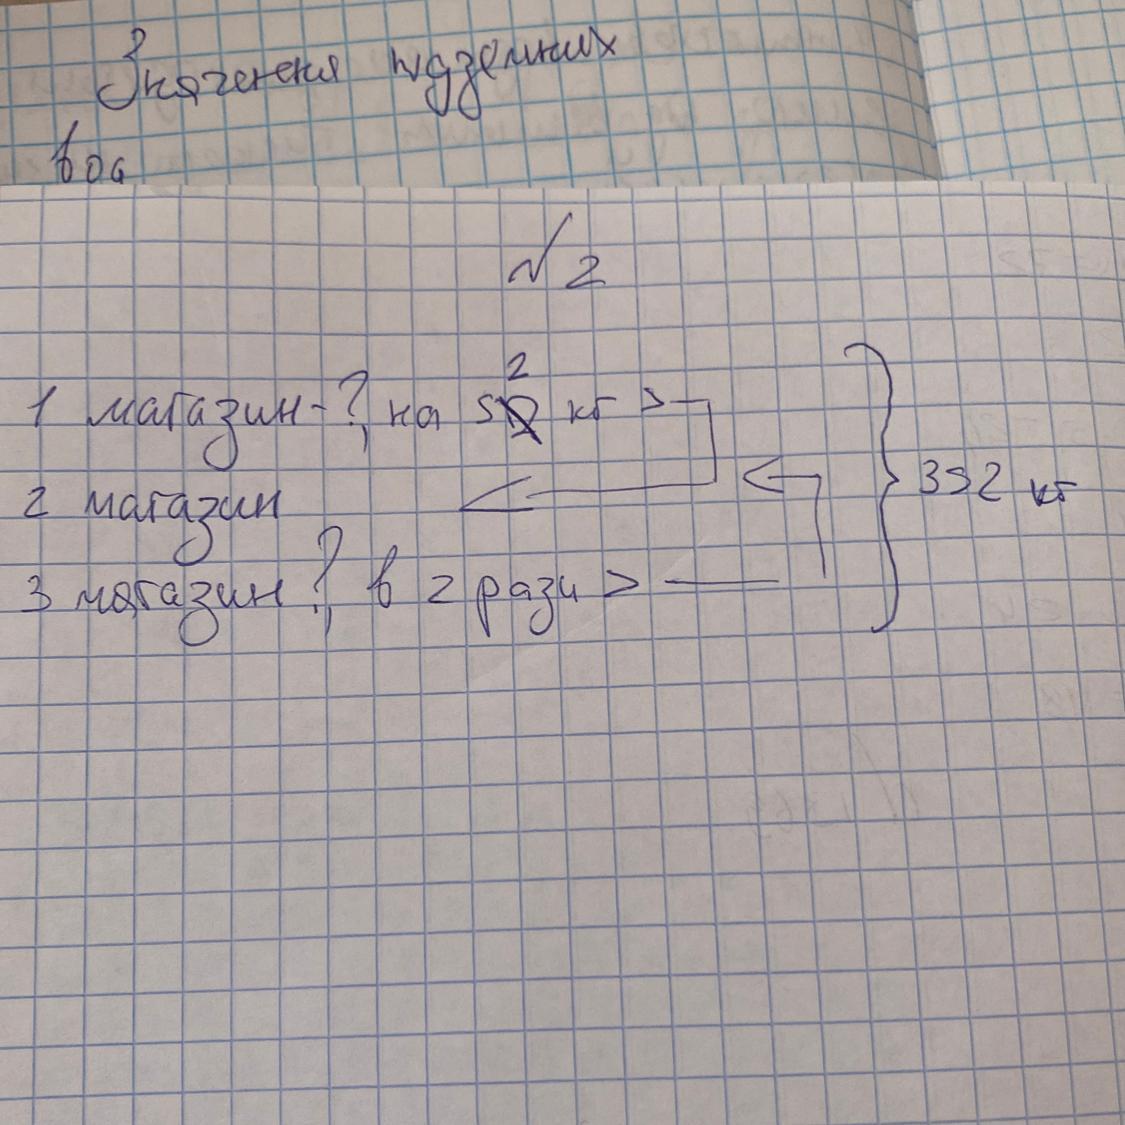 Значення підземних
вод
№ 2
1 магазин - ?, на 52 кг >
2 магазин
3 магазин ?, в 2 рази >
352 кг